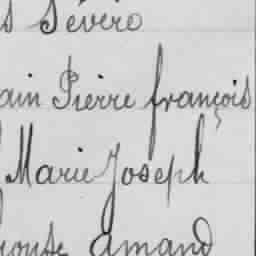 s Sévère
ain Pierre françois
Marie Joseph
Amand